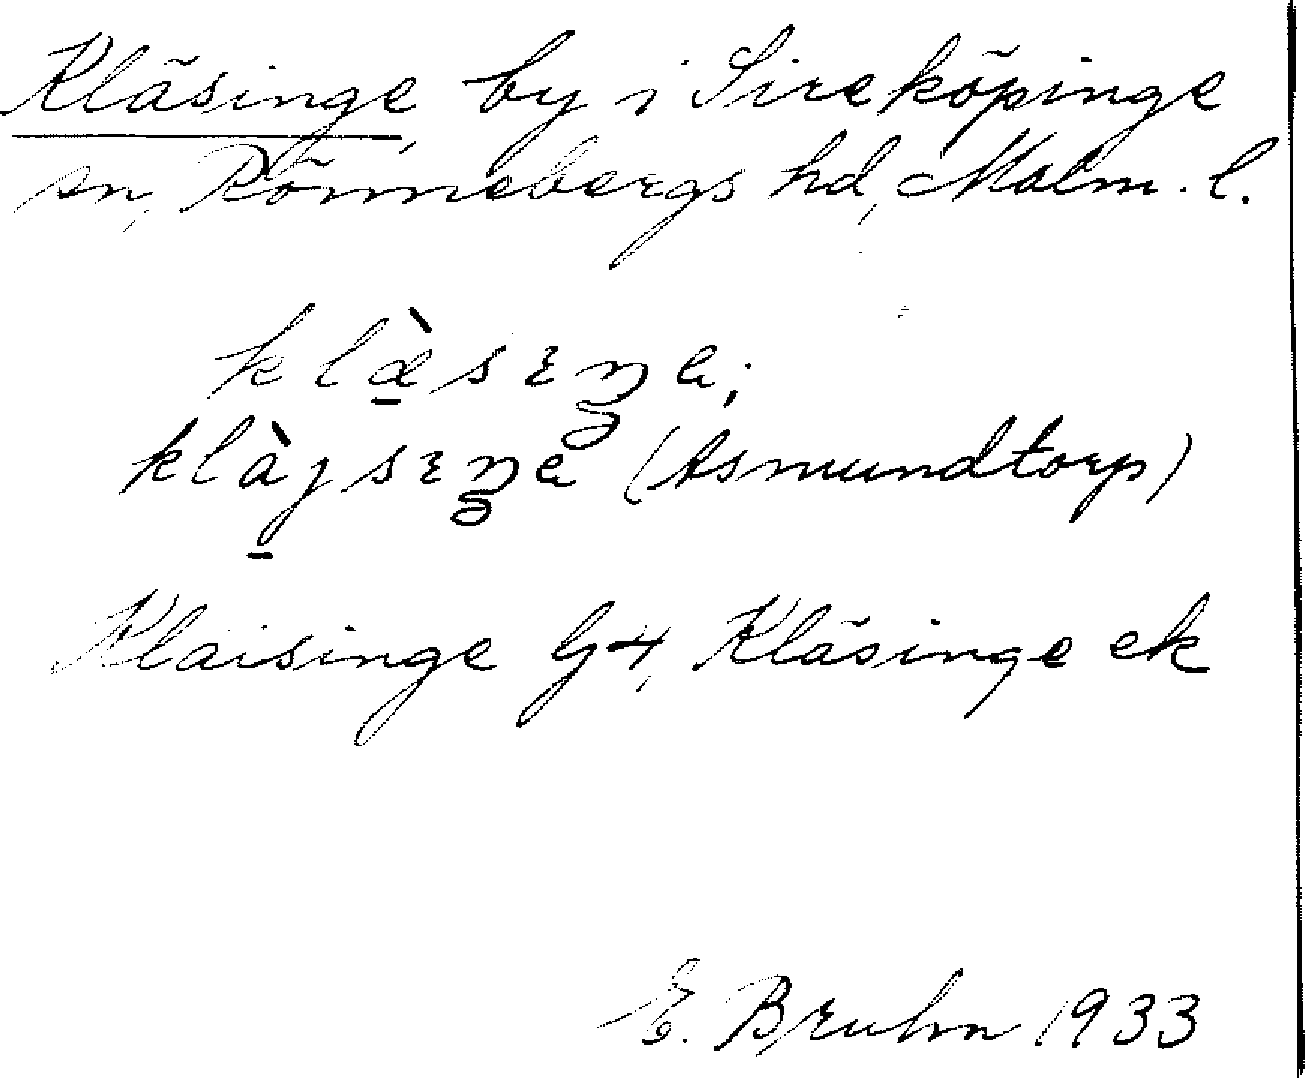 Kläsinge, by i Sireköpinge
sn, Rönnebergs hd, Malm. l.
klæ̱̀sɪŋa;
klàjsɪŋa (Asmundtorp)
Klaisinge G4, Kläsinge ek
E. Bruhn 1933